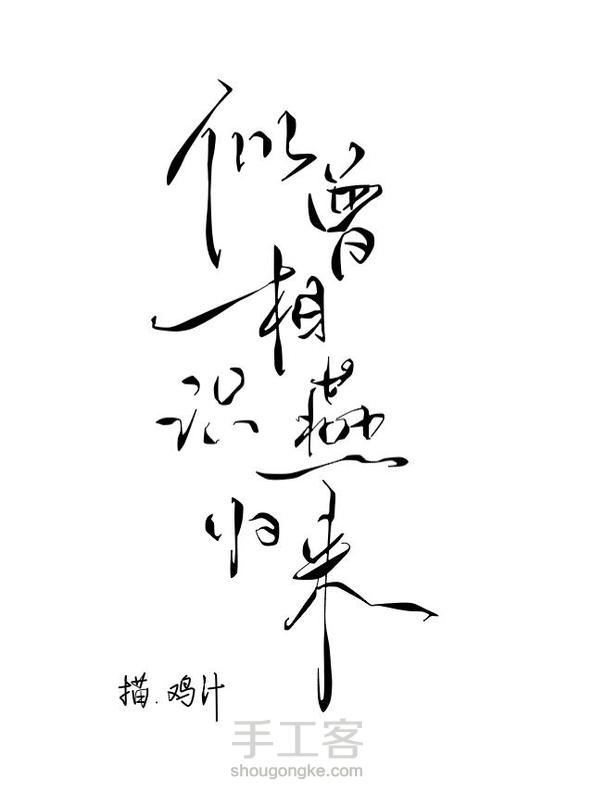 似曾
相
识燕
归来
描.鸡汁
手工客
shougongke.com